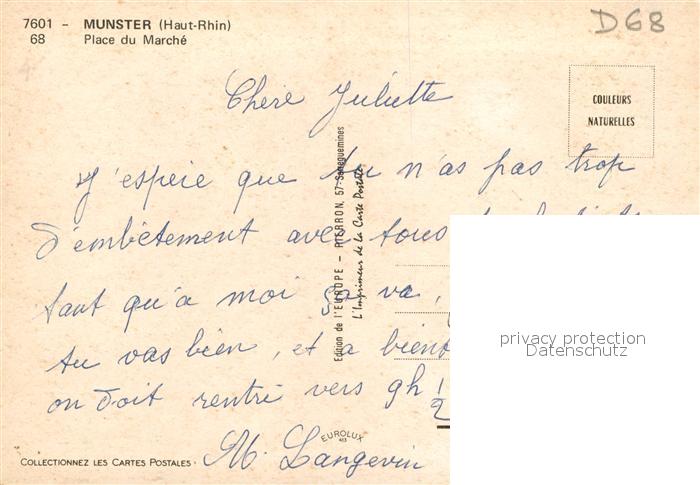 7601 - MUNSTER (Haut-Rhin)
68 Place du Marché
D68
COULEURS
NATURELLES
Chère Juliette
J'espère que tu n'as pas trop
d'embêtement avec tous
tant qu'a moi ça va,
tu vas bien, et a bient
on doit rentré vers 9h 1/2
M. Langevin
Edition de l'EUROPE - PIERRON, 57-Sarreguemines
L'Imprimeur de la Carte Postale
EUROLUX
COLLECTIONNEZ LES CARTES POSTALES
privacy protection
Datenschutz